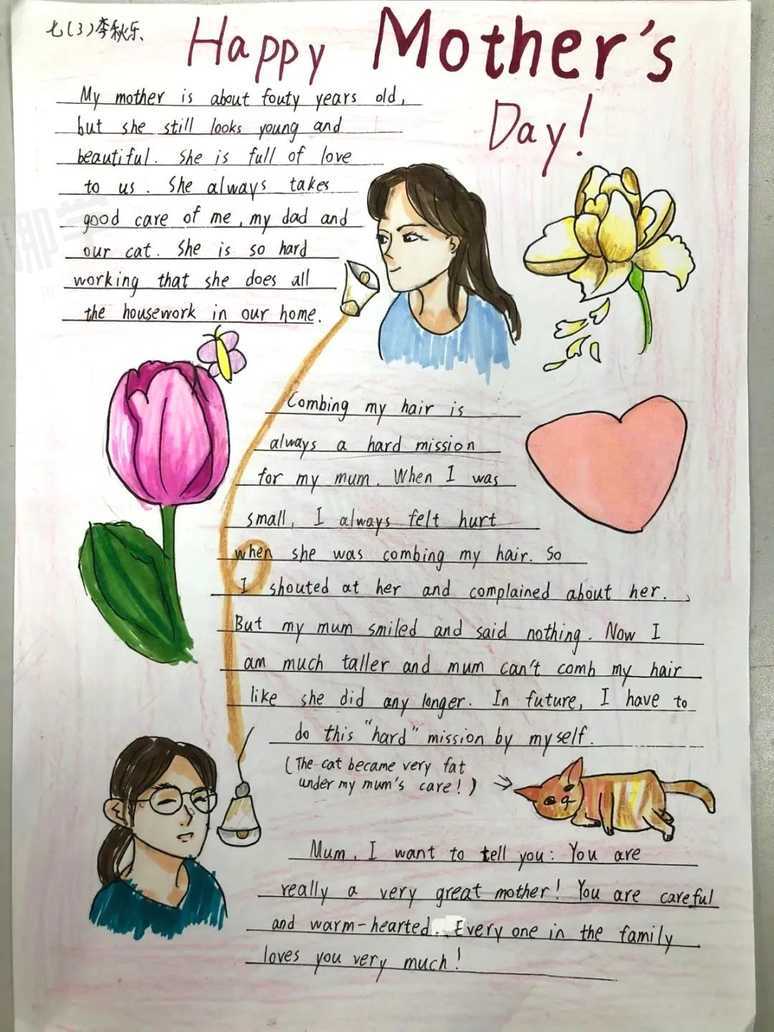 七(3)李秋乐
Happy Mother's
Day!
My mother is about fouty years old,
but she still looks young and
beautiful. She is full of love
to us. She always takes
good care of me, my dad and
our cat. She is so hard
working that she does all
the housework in our home.
Combing my hair is
always a hard mission
for my mum. When I was
small, I always felt hurt
when she was combing my hair. So
I shouted at her and complained about her.
But my mum smiled and said nothing. Now I
am much taller and mum can't comb my hair
like she did any longer. In future, I have to
do this "hard" mission by myself.
(The cat became very fat
under my mum's care!)
Mum, I want to tell you: You are
really a very great mother! You are careful
and warm-hearted. Every one in the family
loves you very much!